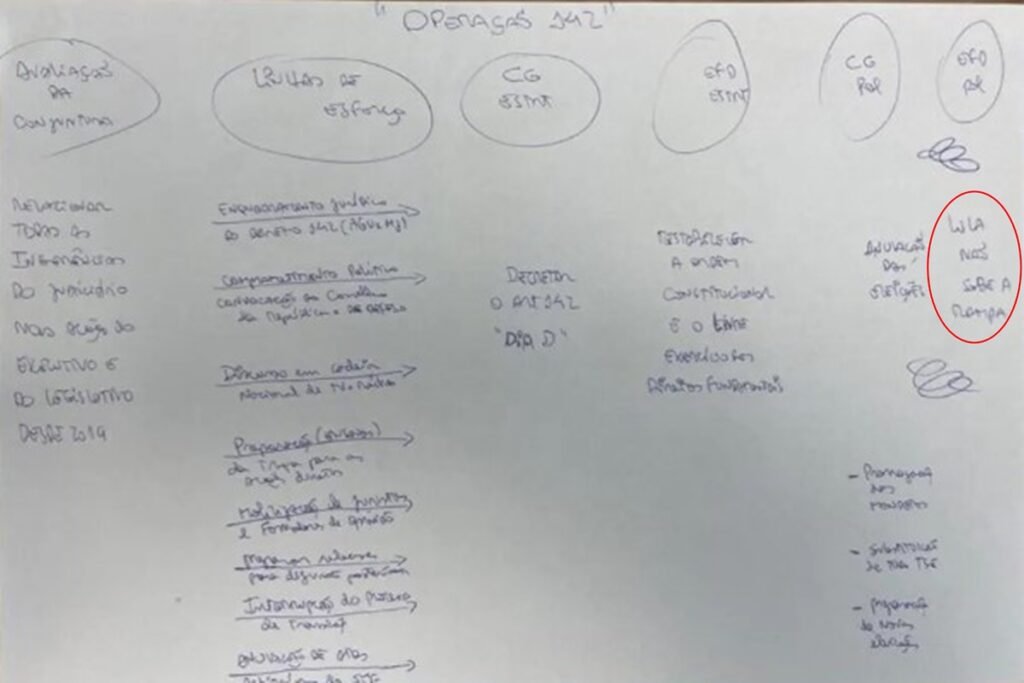 "OPERAÇÃO 142"
AVALIAÇÃO
DA
CONJUNTURA
RELACIONAR
TODAS AS
INTERFERÊNCIAS
DO JUDICIÁRIO
NAS AÇÕES DO
EXECUTIVO E
DO LEGISLATIVO
DESDE 2019
LINHAS DE
ESFORÇO
Enquadramento jurídico
do decreto 142 (AGU e MJ)
Comprometimento Político
Convocação do Conselho
da República e de Defesa
Discurso em cadeia
Nacional de TV e Rádio
Preparação
da Tropa para as
ações diretas
Mobilização de juristas
e Formadores de opinião
Interrupção do Processo
de Transição
ANULAÇÃO DE ATOS
CG
ESTRT
DECRETAR
O ART 142
"DIA D"
EFD
ESTRT
RESTABELECER
A ORDEM
CONSTITUCIONAL
E O LIVRE
EXERCÍCIO DOS
DIREITOS FUNDAMENTAIS
CG
POL
ANULAÇÃO
DAS
ELEIÇÕES
- Prorrogação
dos
MANDATOS
- Substituição
de todo TSE
- Preparação
de Novas
eleições
EFD
POL
LULA
NÃO
SOBE A
RAMPA